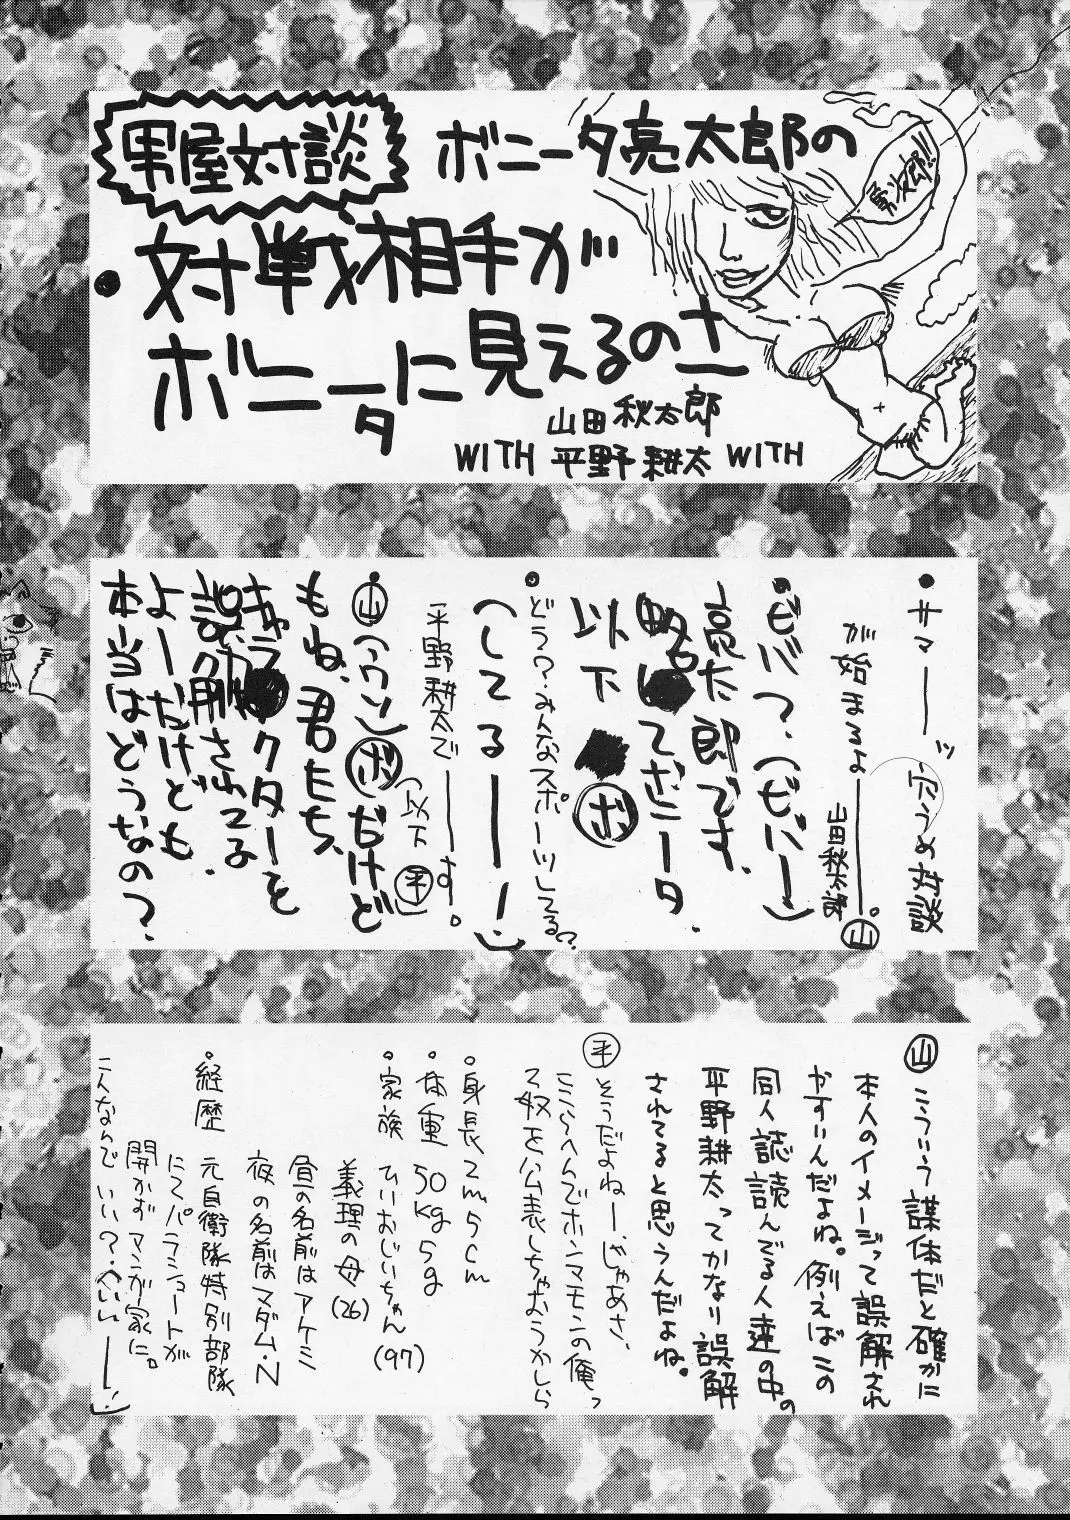 男屋対談
ボニータ亮太郎の
勇次郎!!
・対戦相手が
ボニータに見えるのさー
山田秋太郎
WITH 平野耕太 WITH
・サマーッ 穴うめ対談
が始まるよ――。㊤
山田秋太郎
・ビバ?。(ビバー)
亮太郎です。
略してボニータ。
以下 ボ
・どう?みんなスポーツしてる?。
(してるーー!)
平野耕太でーーす。
(以下 平)
山 (ウソ) ボ だけど
もね、君たち、
キャラクターを
誤解されてる
よーだけども
本当はどうなの?。
山 こういう謀体だと確かに
本人のイメージって誤解され
やすいんだよね。例えばこの
同人誌読んでる人達の中。
平野耕太ってかなり誤解
されてると思うんだよね。
平 そうだよねー。じゃあさ、
ここらへんでホンマモンの俺っ
て奴を公表しちゃおうかしら
・身長 2m5cm
・体重 50kg5g
・家族 ひいおじいちゃん(97)
義理の母(26)
昼の名前はアケミ
夜の名前はマダム・N
・経歴 元自衛隊特別部隊
にてパラシュートが
開かずマンガ家に。
こんなんでいい?。(いいーー!)